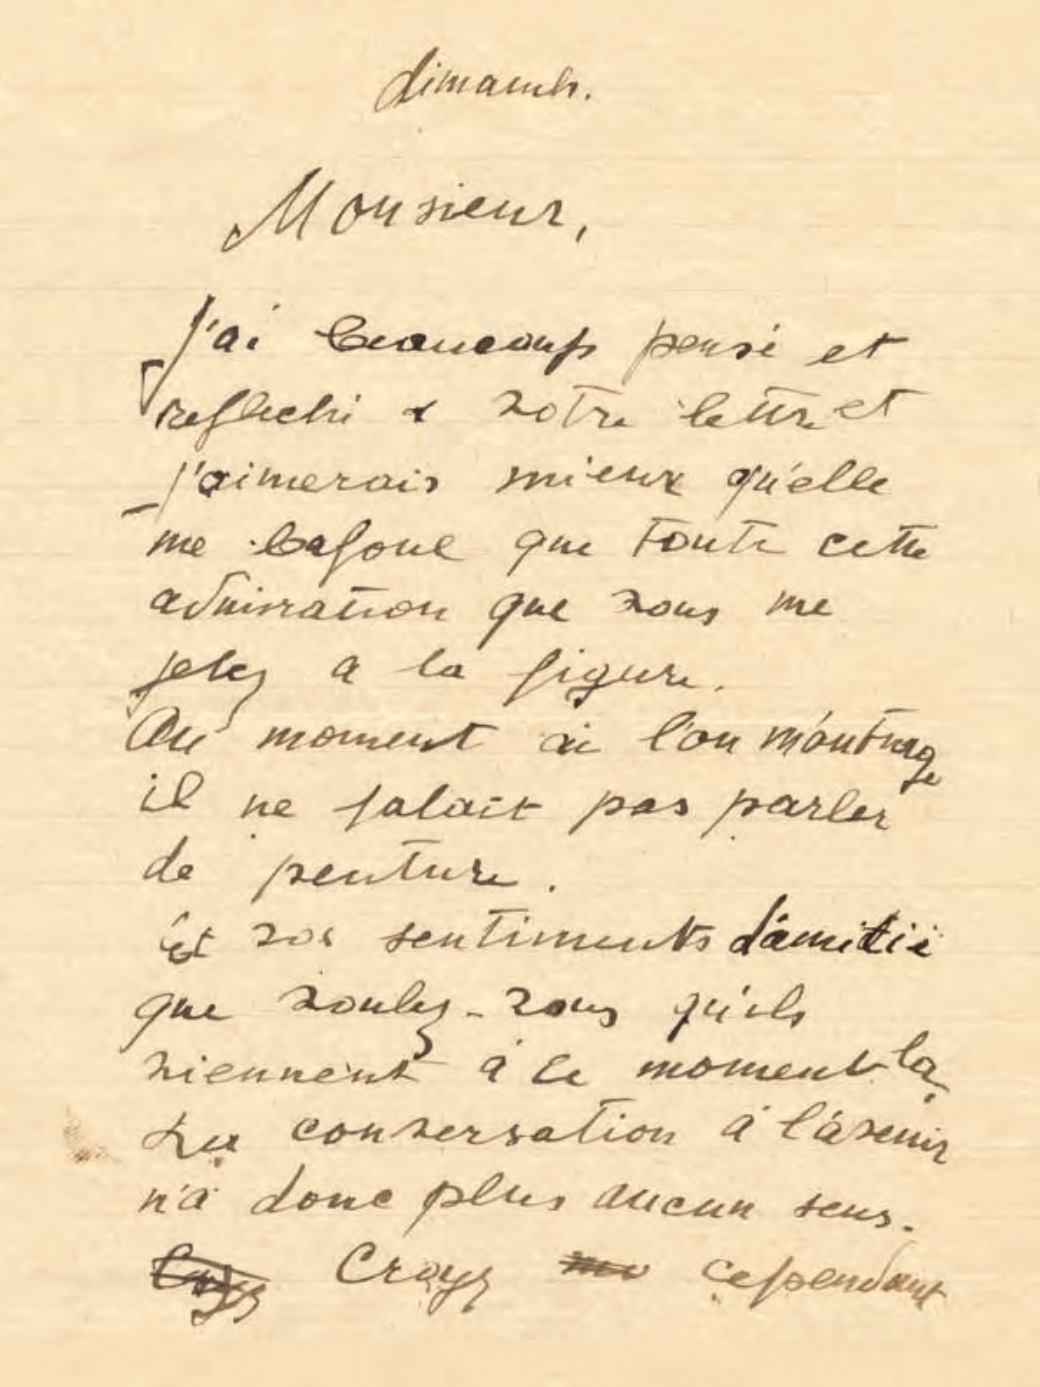 dimanche.
Monsieur,
J'ai beaucoup pensé et
reflechi a votre lettre et
j'aimerais mieux qu'elle
me bafoue que toute cette
admiration que vous me
jetez a la figure.
Au moment où l'on m'outrage
il ne falait pas parler
de peinture.
Et vos sentiments d'amitié
que voulez-vous qu'ils
viennent à ce moment là
La conversation à l'avenir
n'a donc plus aucun sens.
Croyez cependant